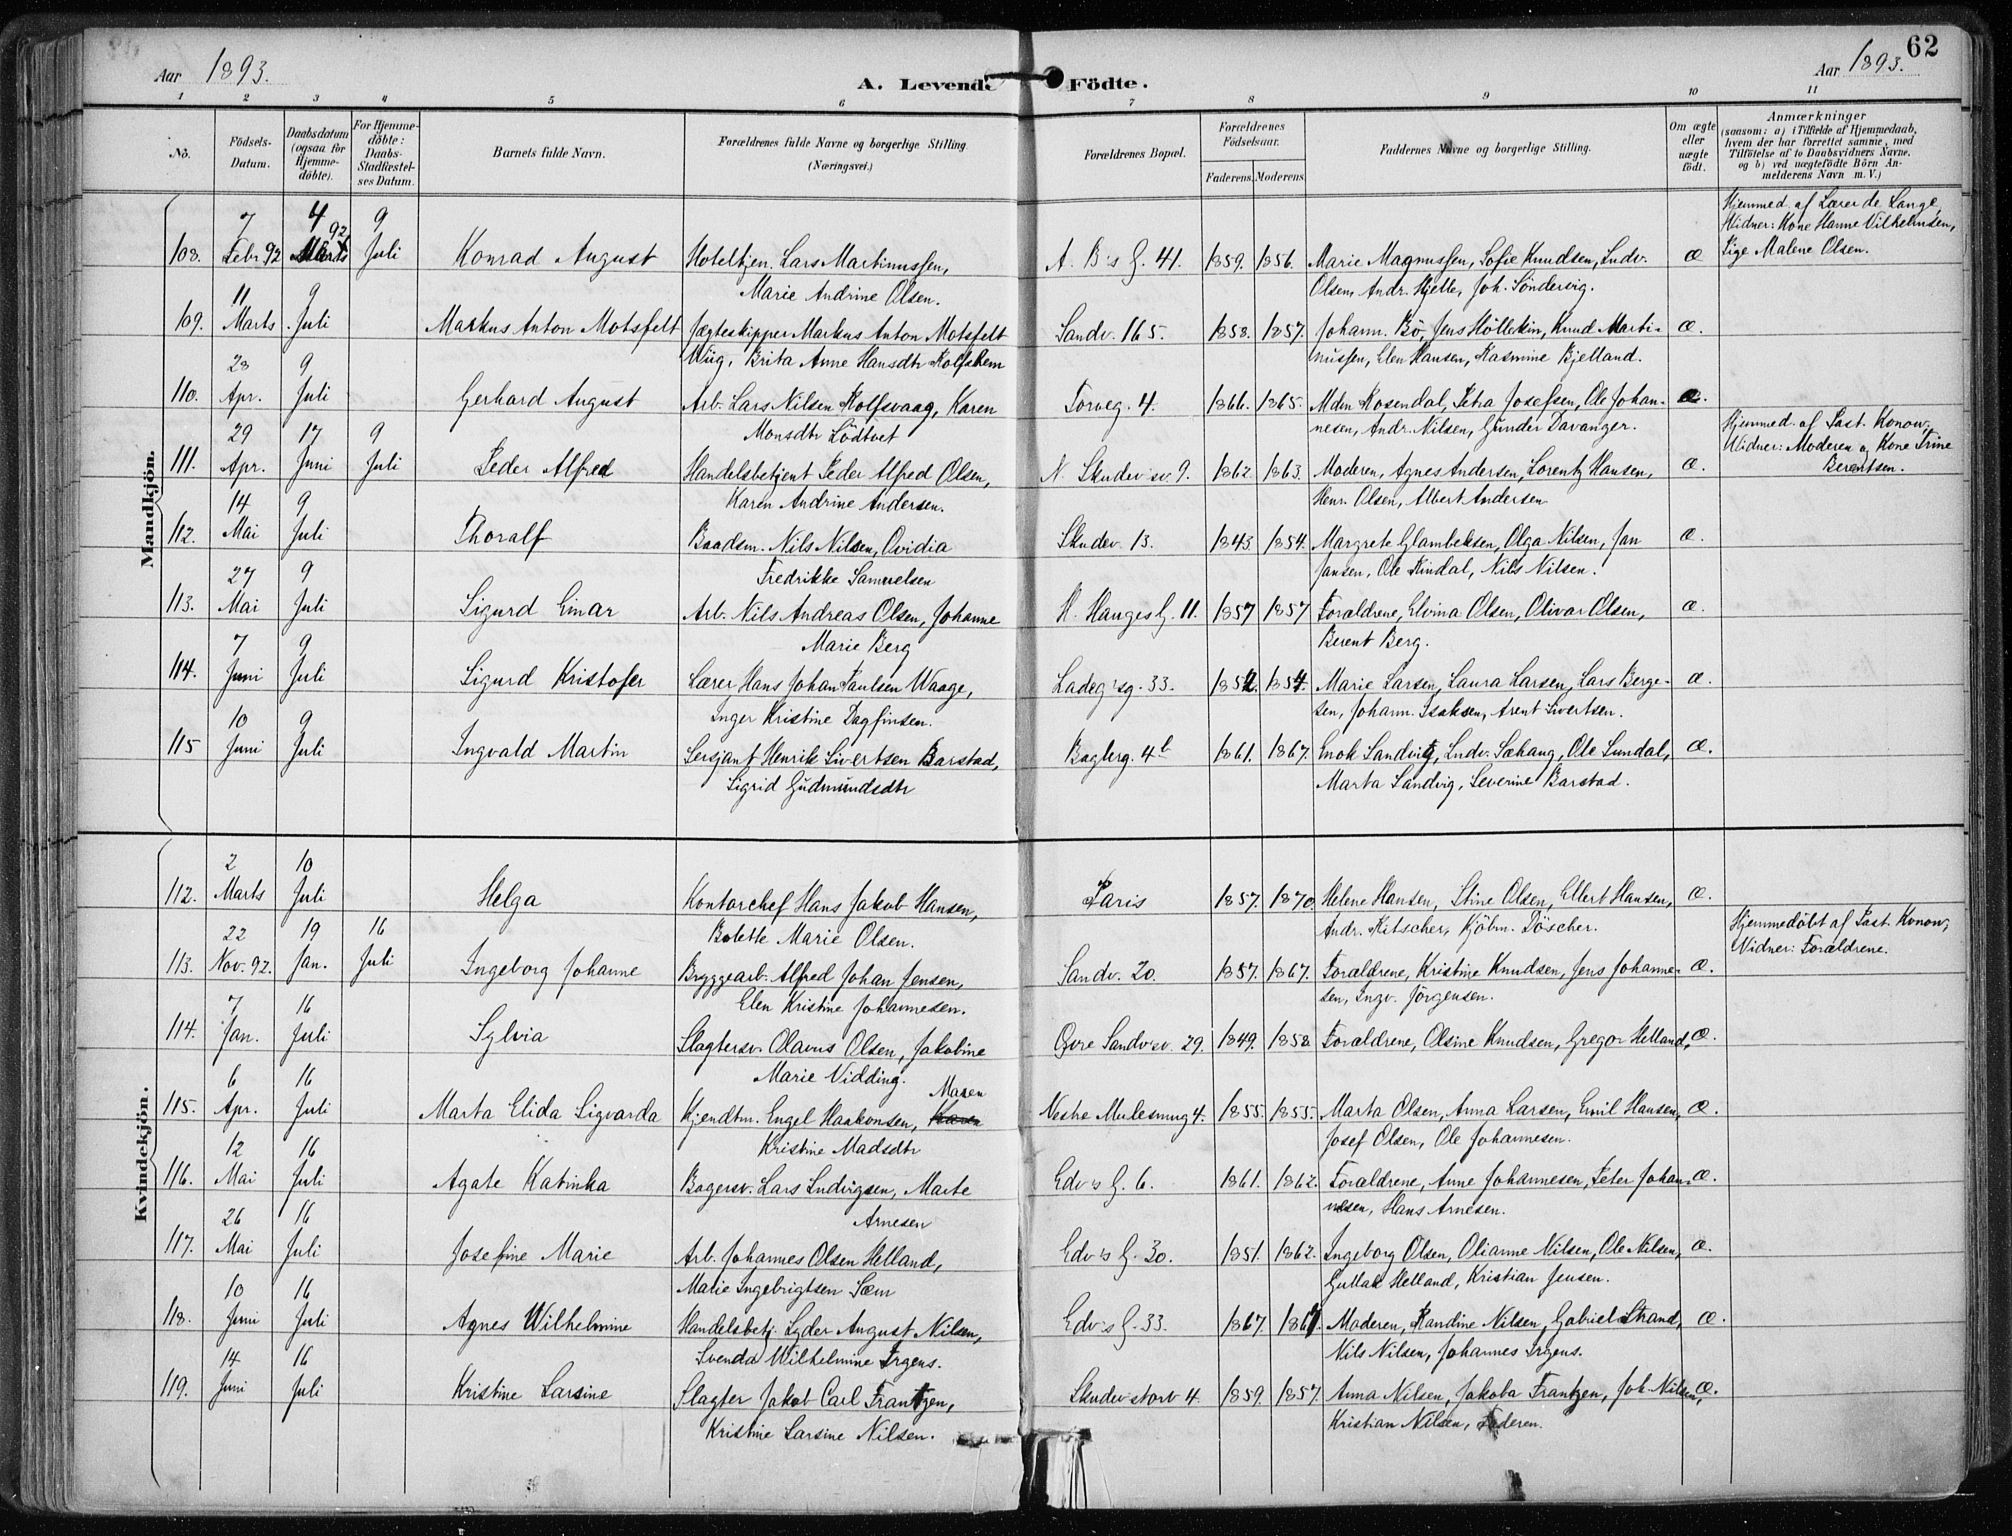 62
Aar 1893.
A. Levende Födte.
Aar 1893.
1 2 3 4 5 6 7 8 9 10 11
No.
Födsels-Datum.
Daabsdatum (ogsaa for Hjemmedöbte).
For Hjemmedöbte: Daabs-Stadfæstelses Datum.
Barnets fulde Navn.
Forældrenes fulde Navne og borgerlige Stilling. (Næringsvei.)
Forældrenes Bopæl.
Forældrenes Födselsaar.
Faderens. Moderens.
Faddernes Navne og borgerlige Stilling.
Om ægte eller uægte födt.
Anmærkninger
(saasom: a) i Tilfælde af Hjemmedaab, hvem der har forrettet samme, med Tilföielse af to Daabsvidners Navne, og b) ved uægtefödte Börn Anmelderens Navn m. V.)
Mandkjön.
108. 7 Febr 92 4 Marts 92 9 Juli Konrad August Hotelkjen. Lars Martinussen, A. B's G. 41. 1859. 1856. Marie Magnussen, Sofie Knudsen, Ludv. Æ Hjemmed. af Lærer de Lange, Vidner: Kone Hanne Vilhelmsen, Pige Malene Olsen.
Marie Andrine Olsen. Olsen, Andr. Hjelle, Joh. Söndervig.
109. 11 Marts 9 Juli Markus Anton Motsfelt Jægteskipper Markus Anton Motsfelt Sandv. 165. 1858. 1857. Johann. Bö, Jens Höllekin, Knud Marti- Æ.
Wiig, Brita Anne Hansdtr Rolfshem nussen, Elen Hansen, Rasmine Bjelland.
110. 23 Apr. 9 Juli Gerhard August Arb. Lars Nilsen Rolfsvaag, Karen Torveg. 4. 1866. 1865. Mdm Rosendal, Petra Josefsen, Ole Johan- Æ.
Monsdtr Lödtvet nesen, Andr. Nilsen, Gunder Davanger.
111. 29 Apr. 17 Juni 9 Juli Peder Alfred Handelsbetjent Peder Alfred Olsen, N. Skudev'sv. 9. 1862. 1863. Moderen, Agnes Andersen, Lorentz Hansen, Æ. Hjemmed. af Past. Konow, Vidner: Moderen og Kone Trine Berentsen.
Karen Andrine Andersen. Henr. Olsen, Albert Andersen
112. 14 Mai 9 Juli Thoralf Baadsm. Nils Nilsen, Ovidia Skudev. 13. 1843 1854. Margrete Glambeksen, Olga Nilsen, Jan Æ.
Fredrikke Samuelsen Jansen, Ole Rindal, Nils Nilsen.
113. 27 Mai 9 Juli Sigurd Einar Arb. Nils Andreas Olsen, Johanne H. Hauges G. 11. 1857 1857 Forældrene, Elvina Olsen, Olivar Olsen, Æ.
Marie Berg Berent Berg.
114. 7 Juni 9 Juli Sigurd Kristofer Lærer Hans Johan Paulsen Waage, Ladeg'sg. 33. 1852. 1854. Marie Larsen, Laura Larsen, Lars Berge- Æ.
Inger Kristine Dagfinsen. sen, Johann. Isaksen, Arent Sivertsen.
115 10 Juni 9 Juli Ingvald Martin Sersjant Henrik Sivertsen Barstad, Bagerg. 4b 1861. 1867. Enok Sandvig, Ludv. Sæhaug, Ole Sundal, Æ.
Sigrid Gudmundsdtr Marta Sandvig, Severine Barstad.
Kvindekjön.
112. 2 Marts 10 Juli Helga Kontorchef Hans Jakob Hansen, Paris 1857. 1870. Helene Hansen, Stine Olsen, Ellert Hansen, Æ.
Bolette Marie Olsen. Andr. Kitscher, Kjöbm. Döscher.
113. 22 Nov. 92. 19 Jan. 16 Juli Ingeborg Johanne Bryggearb. Alfred Johan Jensen, Sandv. 20. 1857. 1867. Forældrene, Kristine Knudsen, Jens Johanne- Æ. Hjemmedöbt af Past. Konow, Vidner: Forældrene.
Elen Kristine Johannesen. sen, Ingv. Jörgensen.
114. 7 Jan. 16 Juli Sylvia Slagtersv. Olavus Olsen, Jakobine Övre Sandv'sv. 29. 1849. 1858. Forældrene, Olsine Knudsen, Gregor Helland, Æ.
Marie Vidding.
115. 6 Apr. 16 Juli Marta Elida Sigvarda Kjendtm. Engel Haakonsen, Karen Maren Nestre Mulesmug 4. 1855. 1855. Marta Olsen, Anna Larsen, Emil Hansen, Æ.
Kristine Madsdtr Josef Olsen, Ole Johannesen.
116. 12 Mai 16 Juli Agate Katinka Bagersv. Lars Ludvigsen, Marte Edv's G. 6. 1861. 1862. Forældrene, Anne Johannesen, Peter Johan- Æ.
Arnesen nesen, Hans Arnesen.
117. 26 Mai 16 Juli Josefine Marie Arb. Johannes Olsen Helland, Edv's G. 30. 1851. 1862. Ingeborg Olsen, Olianne Nilsen, Ole Nilsen, Æ.
Marie Ingebrigtsen Sæm Gullak Helland, Kristian Jensen.
118. 10 Juni 16 Juli Agnes Wilhelmine Handelsbetj. Lyder August Nilsen, Edv's G. 33. 1867. 1867. Moderen, Randine Nilsen, Gabriel Strand, Æ.
Svenda Wilhelmine Irgens. Nils Nilsen, Johannes Irgens.
119. 14 Juni 16 Juli Kristine Larsine Slagter Jakob Carl Frantzen, Skudev'storv 4. 1859. 1857. Anna Nilsen, Jakoba Frantzen, Joh. Nilsen, Æ.
Kristine Larsine Nilsen. Kristian Nilsen, Faderen.